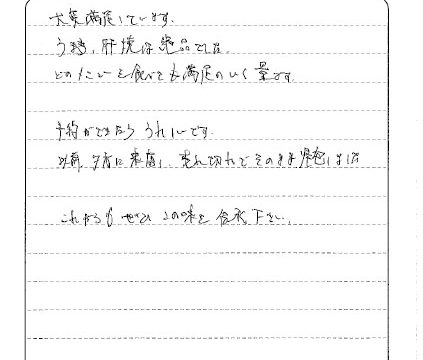 大変満足しています。
うまき、肝焼は絶品でした。
どのくらいを食べても満足のいく量です。
予約ができたらうれしいです。
以前、夕方に来店し、売れ切れでそのまま帰宅しました
これからもぜひこの味を 下さい。